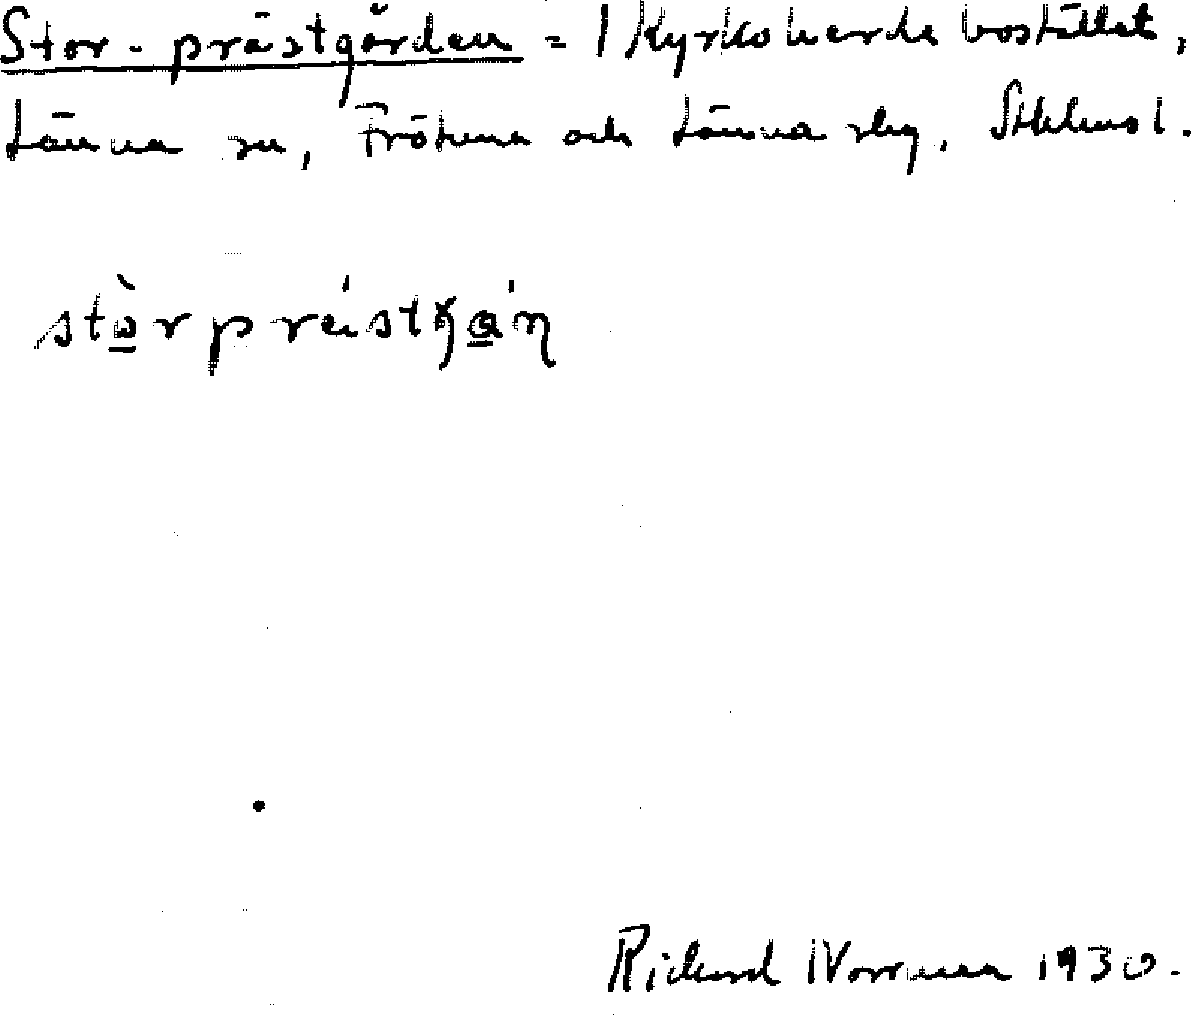 Stor-prästgården = 1 Kyrkoherdebostället,
Länna sn, Frötuna och Länna slg, Sthlms l.
stòrpräistgán
Richard Norrman 1930.